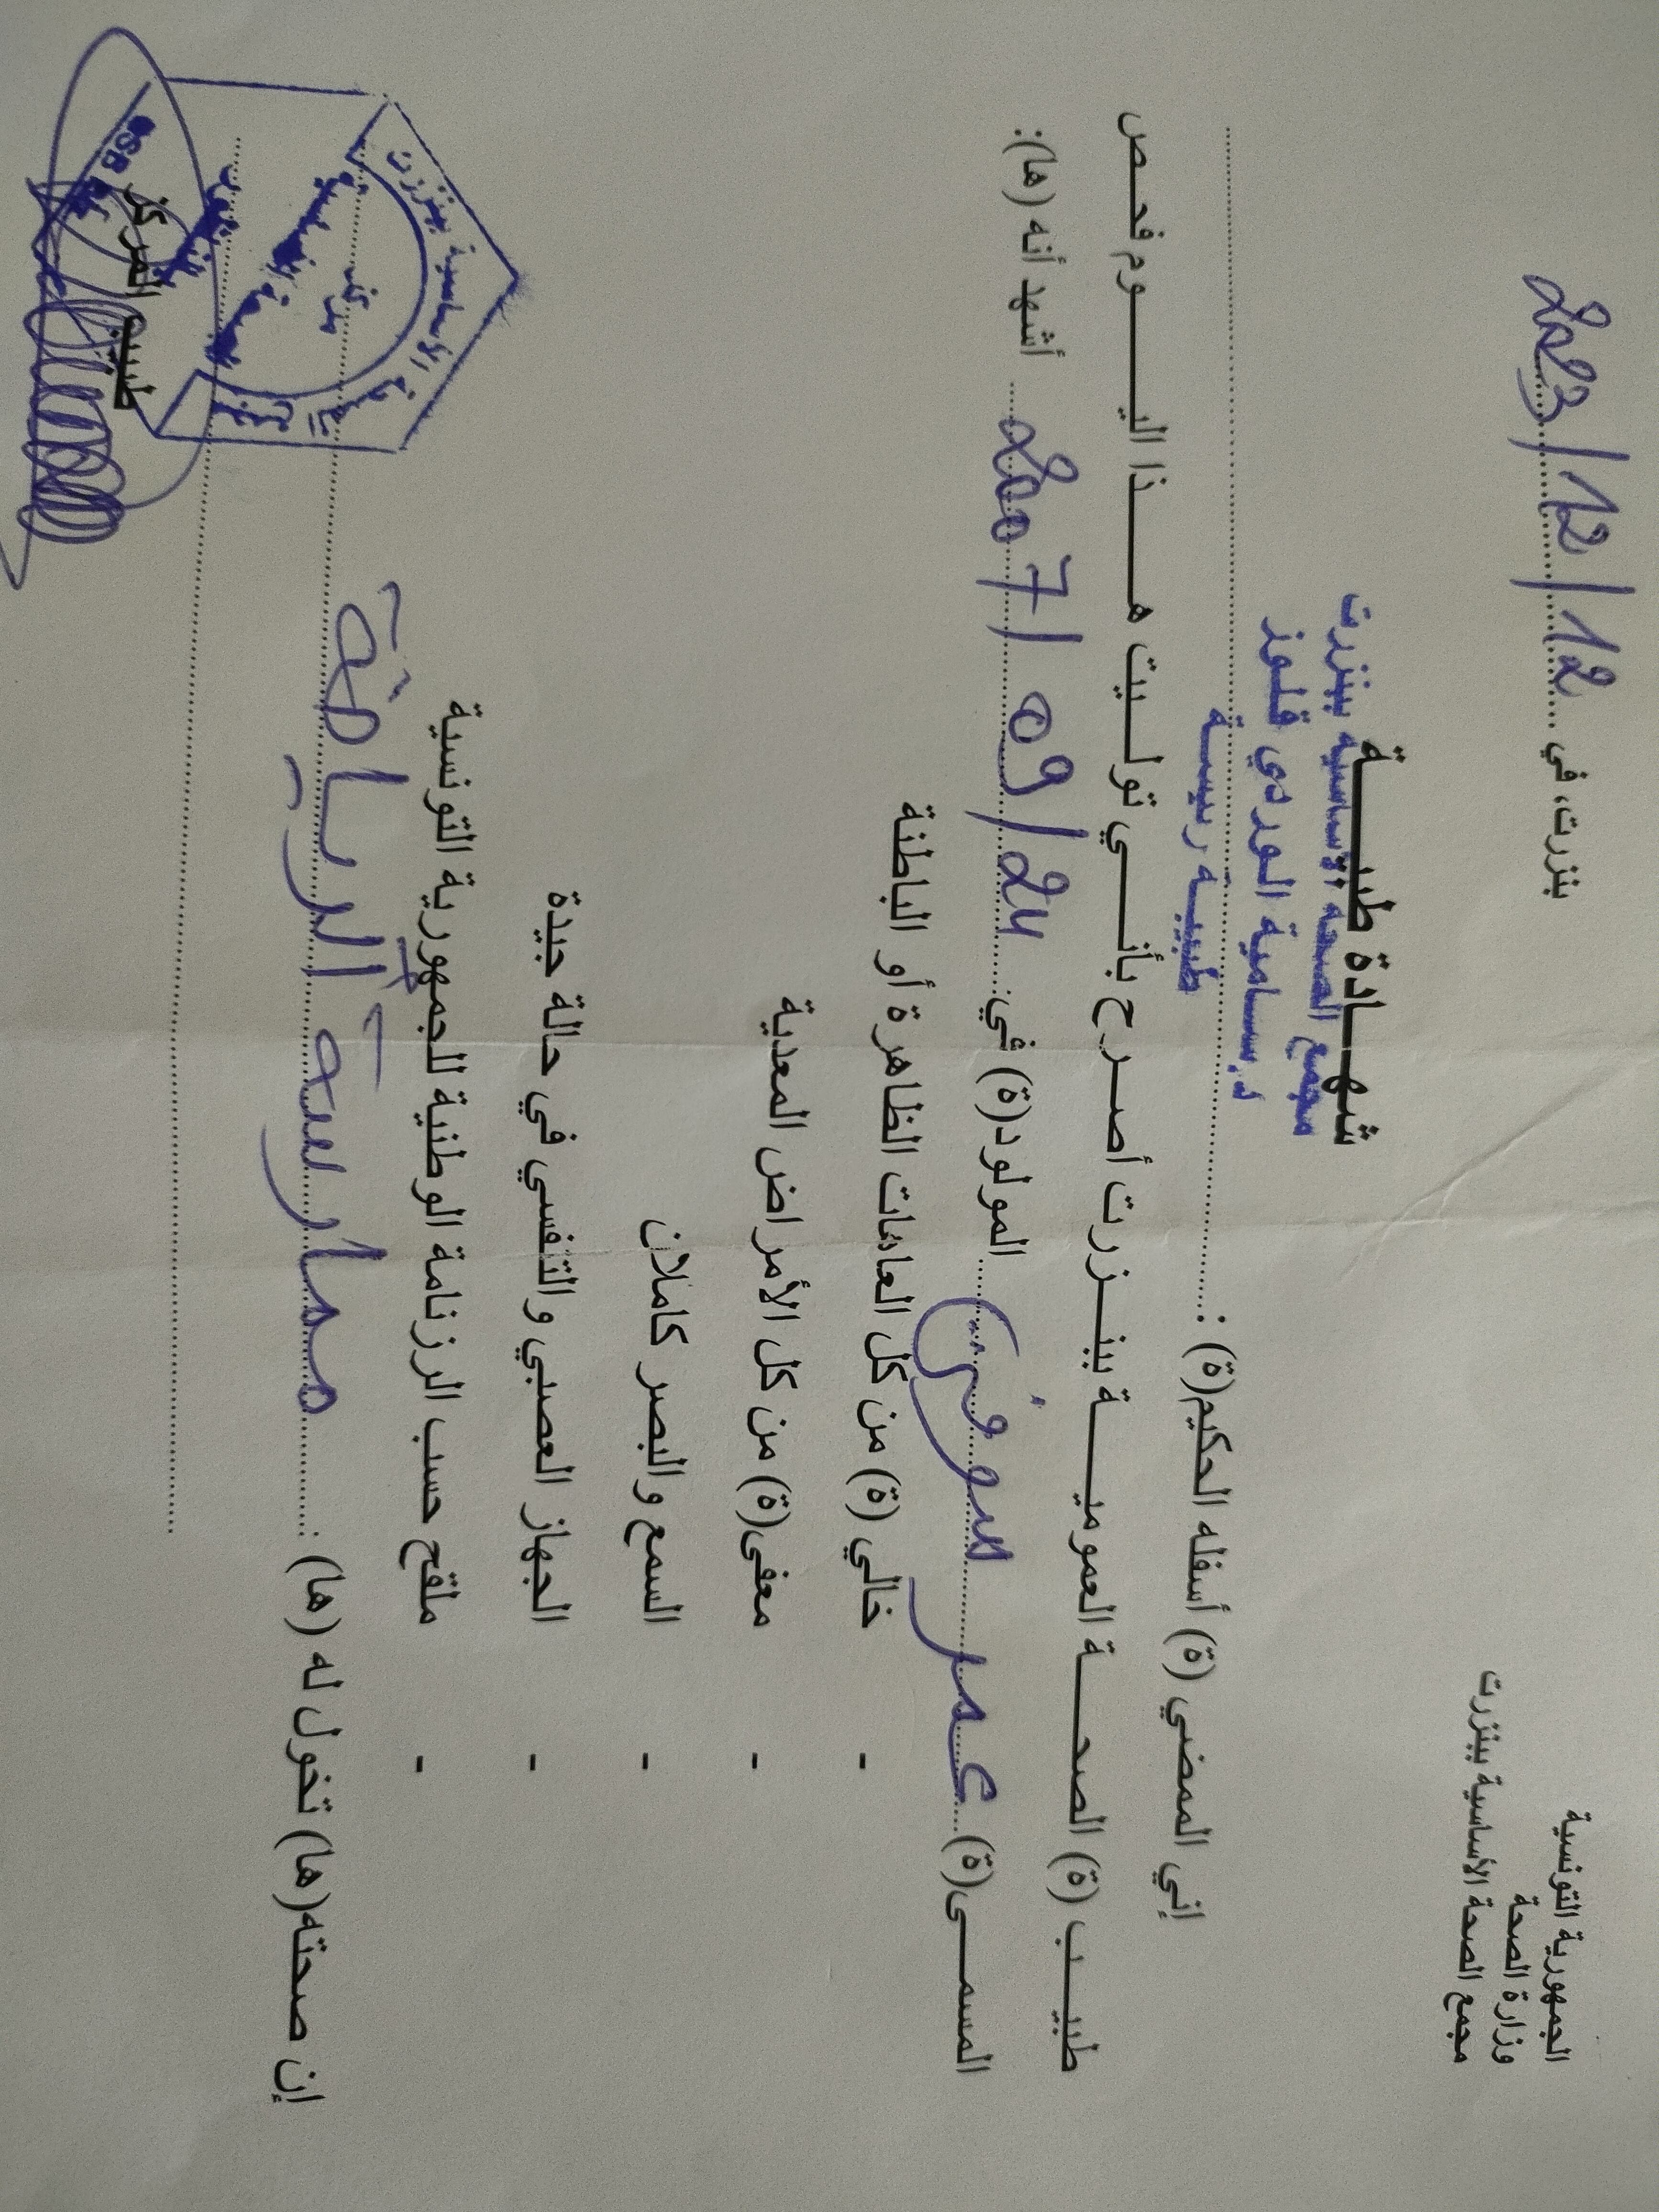 الجمهورية التونسية
وزارة الصحة
مجمع الصحة الأساسية ببنزرت
بنزرت، في 12/12/2023
شهـــادة طبيـــــة
مجمع الصحة الأساسية ببنزرت
د. سامية الوردي قلوز
طبيبة رئيسة
إني الممضي (ة) أسفله الحكيم(ة) :
طبيـــب (ة) الصحـــــة العموميـــــة ببنـــزرت أصـــرح بأنـــــي تولـــيت هـــــذا اليـــــوم فحـــص
المسمـــى(ة) عمر المولود(ة) في: 24/09/2007 أشهد أنه (ها):
- خالي (ة) من كل العاهات الظاهرة أو الباطنة
- معفى(ة) من كل الأمراض المعدية
- السمع والبصر كاملان
- الجهاز العصبي والتنفسي في حالة جيدة
- ملقح حسب الرزنامة الوطنية للجمهورية التونسية
إن صحته(ها) تخول له (ها) : ممارسة الرياضة
مركز
الصحة الأساسية
طبيب المركز
CSB